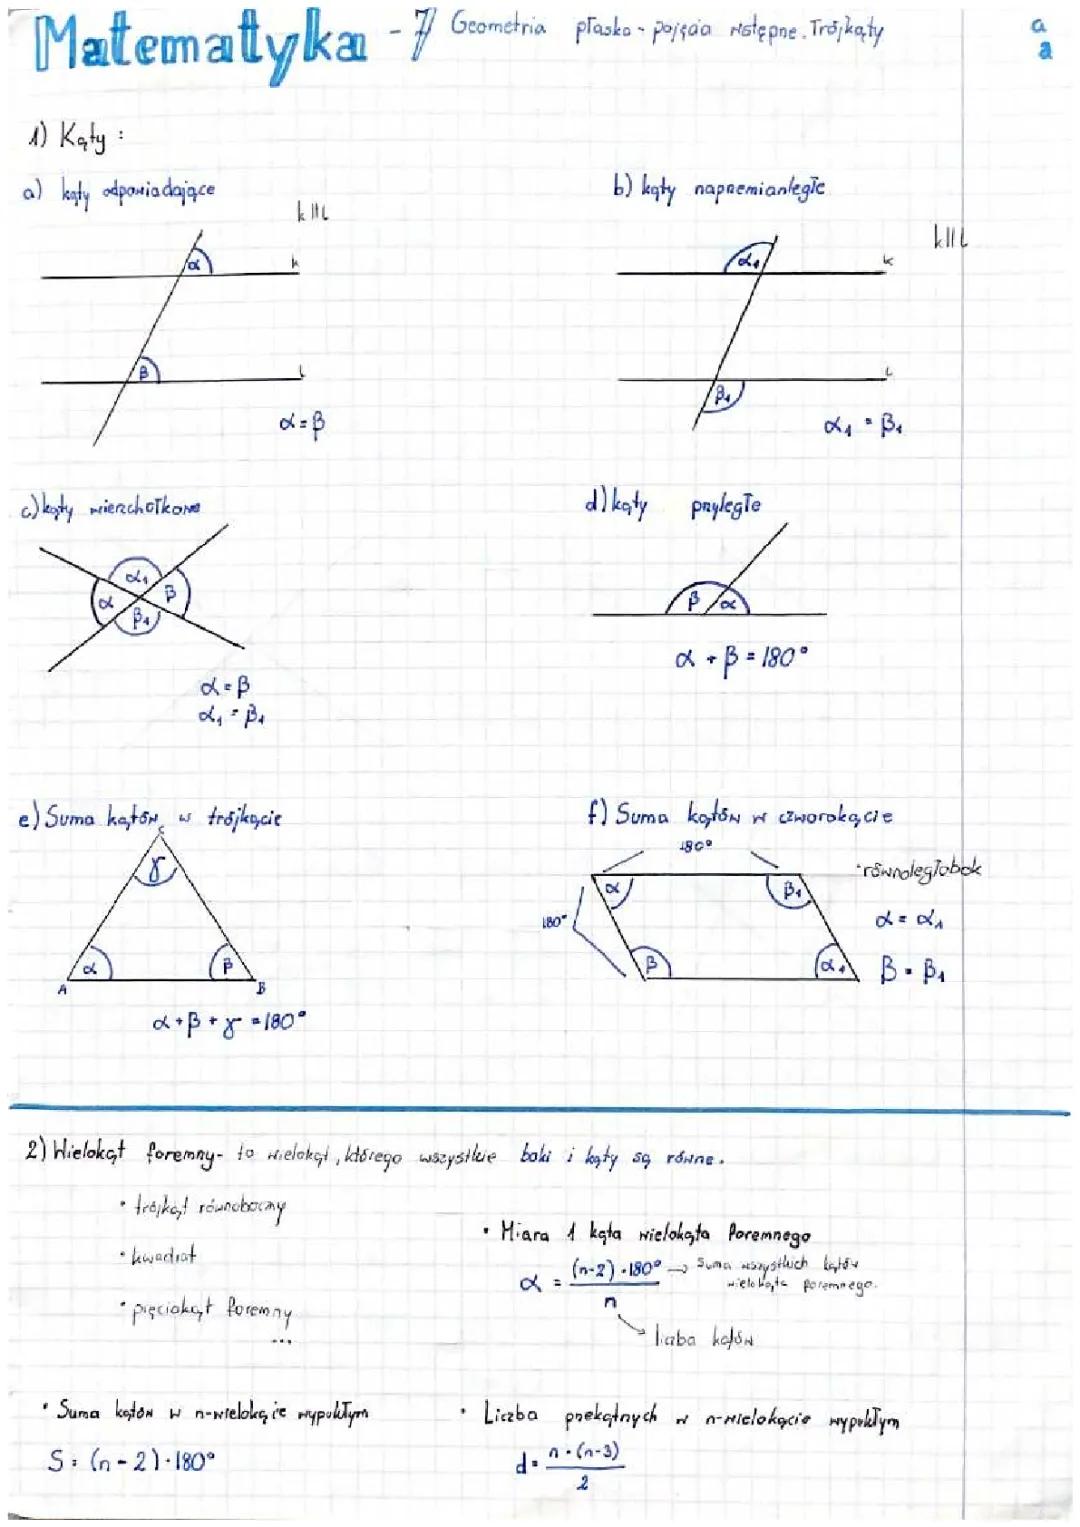 Matematyka - 7 Geometria płaska - pojęcia wstępne. Trójkąty
a
a
1) Kąty :
a) kąty odpowiadające
k || l
α
k
β
l
α = β
b) kąty naprzemianległe
k || l
α₁
k
β₁
l
α₁ = β₁
c) kąty wierzchołkowe
α₁
α
β
β₁
α = β
α₁ = β₁
d) kąty przyległe
β
α
α + β = 180°
e) Suma kątów w trójkącie
C
γ
α
β
A
B
α + β + γ = 180°
f) Suma kątów w czworokącie
180°
• równoległobok
α
β₁
180°
α = α₁
β
α₁
β = β₁
2) Wielokąt foremny - to wielokąt, którego wszystkie boki i kąty są równe.
• trójkąt równoboczny
• kwadrat
• pięciokąt foremny
...
• Miara 1 kąta wielokąta foremnego
α = (n-2) · 180° → Suma wszystkich kątów
wielokąta foremnego.
n
→ liczba kątów
• Suma kątów w n-wielokącie wypukłym
S = (n - 2) · 180°
• Liczba przekątnych w n-wielokącie wypukłym
d = n · (n-3)
2